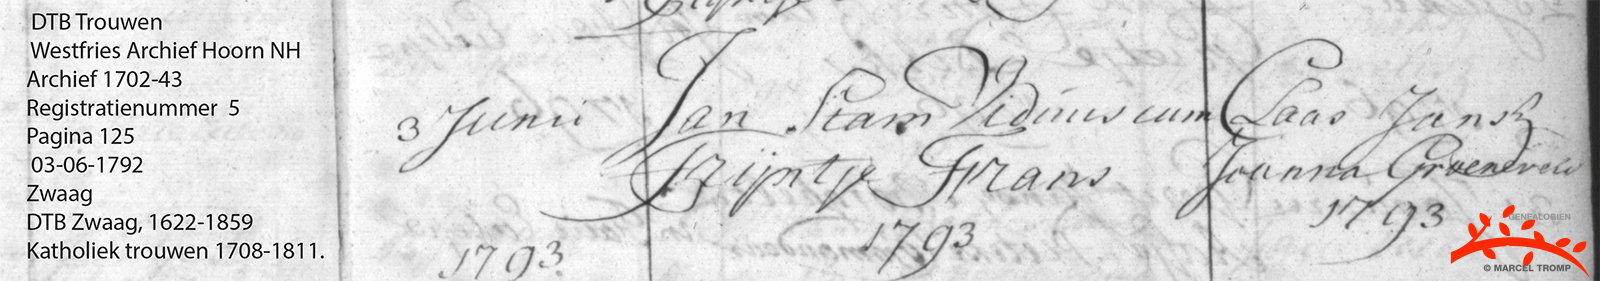 DTB Trouwen
Westfries Archief Hoorn NH
Archief 1702-43
Registratienummer 5
Pagina 125
03-06-1792
Zwaag
DTB Zwaag, 1622-1859
Katholiek trouwen 1708-1811.
3 Junii Jan Stam Viduus cum Claas Jansz
Trijntje Frans Joanna Groeneveld
1793 1793 1793
GENEALOGIEN
© MARCEL TROMP